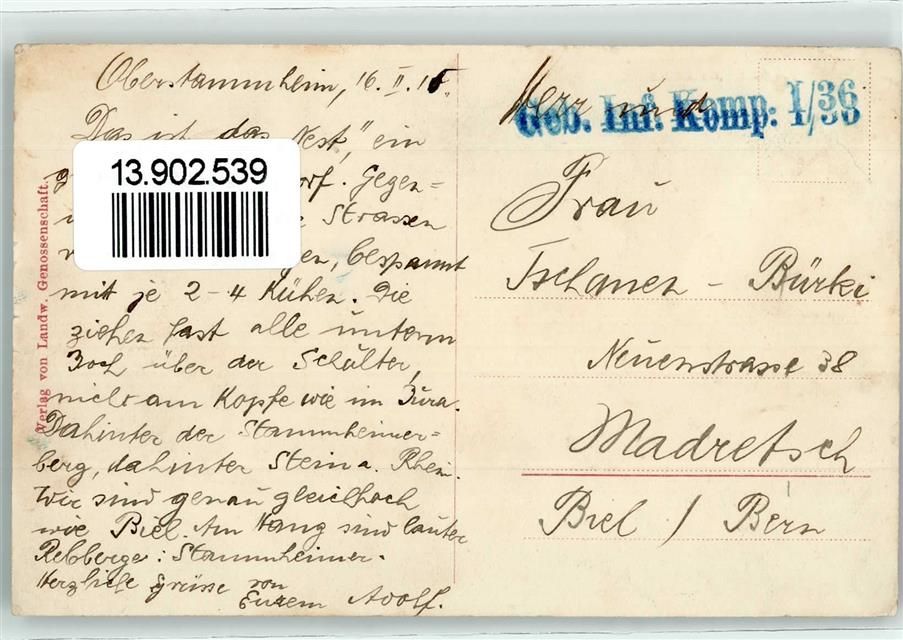 Oberstammheim, 16. II. 15.
Das ist das "Nest", ein
13.902.539
orf. Gegen=
Strassen
en, bespannt
mit je 2-4 Kühen. Die
ziehen fast alle unterm
Joch über der Schulter,
nicht am Kopfe wie im Jura.
Dahinter der Stammheimer=
berg, dahinter Stein a. Rhein.
Wir sind genau gleichhoch
wie Biel. Am Hang sind lauter
Rebberge: Stammheimer.
Herzliche Grüsse von
Eurem Adolf.
Verlag von Landw. Genossenschaft.
Geb. Inf. Komp: I/36
Herr und
Frau
Tschanen - Bürki
Neuenstrasse 38
Madretsch
Biel / Bern